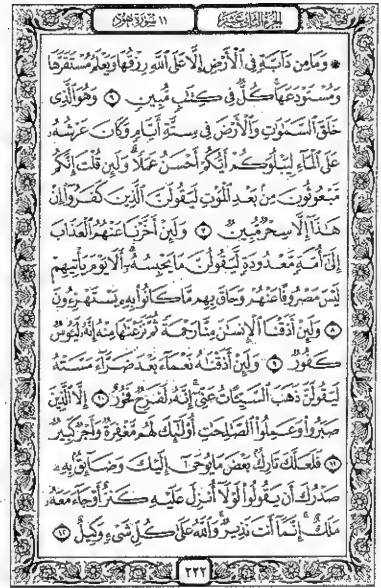 الجزء الثاني عشر
١١ سورة هود
۞ وَمَا مِن دَآبَّةٍ فِي ٱلْأَرْضِ إِلَّا عَلَى ٱللَّهِ رِزْقُهَا وَيَعْلَمُ مُسْتَقَرَّهَا
وَمُسْتَوْدَعَهَا كُلٌّ فِي كِتَٰبٍ مُّبِينٍ ٦ وَهُوَ ٱلَّذِي
خَلَقَ ٱلسَّمَٰوَٰتِ وَٱلْأَرْضَ فِي سِتَّةِ أَيَّامٍ وَكَانَ عَرْشُهُۥ
عَلَى ٱلْمَآءِ لِيَبْلُوَكُمْ أَيُّكُمْ أَحْسَنُ عَمَلًا وَلَئِن قُلْتَ إِنَّكُم
مَّبْعُوثُونَ مِنۢ بَعْدِ ٱلْمَوْتِ لَيَقُولَنَّ ٱلَّذِينَ كَفَرُوٓا۟ إِنْ
هَٰذَآ إِلَّا سِحْرٌ مُّبِينٌ ٧ وَلَئِنْ أَخَّرْنَا عَنْهُمُ ٱلْعَذَابَ
إِلَىٰٓ أُمَّةٍ مَّعْدُودَةٍ لَّيَقُولُنَّ مَا يَحْبِسُهُۥٓ أَلَا يَوْمَ يَأْتِيهِمْ
لَيْسَ مَصْرُوفًا عَنْهُمْ وَحَاقَ بِهِم مَّا كَانُوا۟ بِهِۦ يَسْتَهْزِءُونَ
٨ وَلَئِنْ أَذَقْنَا ٱلْإِنسَٰنَ مِنَّا رَحْمَةً ثُمَّ نَزَعْنَٰهَا مِنْهُ إِنَّهُۥ لَيَـُٔوسٌ
كَفُورٌ ٩ وَلَئِنْ أَذَقْنَٰهُ نَعْمَآءَ بَعْدَ ضَرَّآءَ مَسَّتْهُ
لَيَقُولَنَّ ذَهَبَ ٱلسَّيِّـَٔاتُ عَنِّيٓ إِنَّهُۥ لَفَرِحٌ فَخُورٌ ١٠ إِلَّا ٱلَّذِينَ
صَبَرُوا۟ وَعَمِلُوا۟ ٱلصَّٰلِحَٰتِ أُو۟لَٰٓئِكَ لَهُم مَّغْفِرَةٌ وَأَجْرٌ كَبِيرٌ
١١ فَلَعَلَّكَ تَارِكٌۢ بَعْضَ مَا يُوحَىٰٓ إِلَيْكَ وَضَآئِقٌۢ بِهِۦ
صَدْرُكَ أَن يَقُولُوا۟ لَوْلَآ أُنزِلَ عَلَيْهِ كَنزٌ أَوْ جَآءَ مَعَهُۥ
مَلَكٌ إِنَّمَآ أَنتَ نَذِيرٌ وَٱللَّهُ عَلَىٰ كُلِّ شَيْءٍ وَكِيلٌ ١٢
٢٢٢